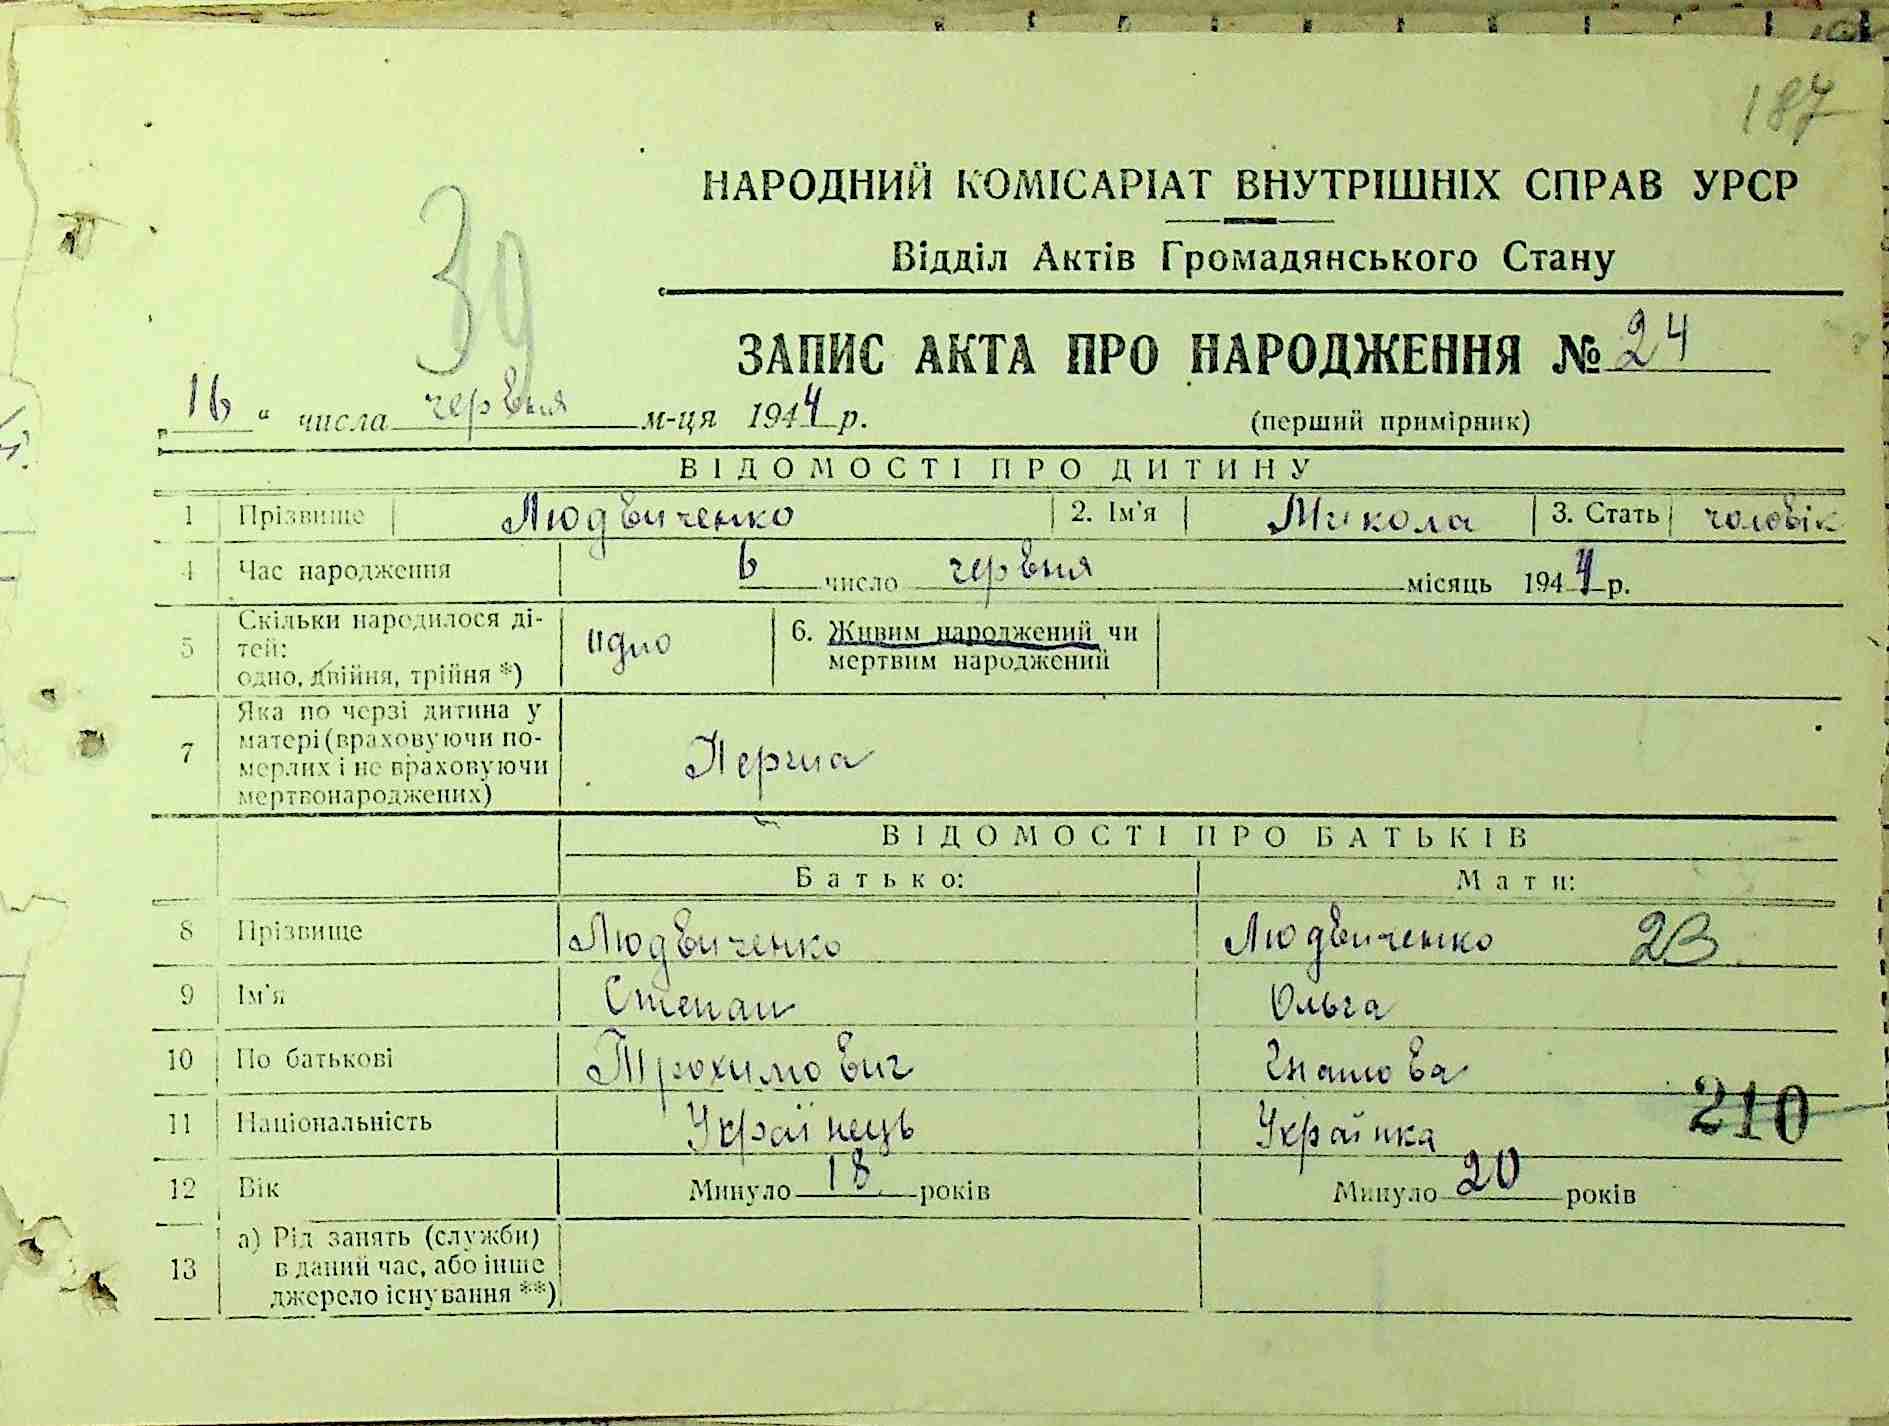 187
НАРОДНИЙ КОМІСАРІАТ ВНУТРІШНІХ СПРАВ УРСР
39
Відділ Актів Громадянського Стану
ЗАПИС АКТА ПРО НАРОДЖЕННЯ № 24
16 " числа червня м-ця 1944 р. (перший примірник)
ВІДОМОСТІ ПРО ДИТИНУ
1 Прізвище Людвиченко 2. Ім'я Микола 3. Стать чоловік
4 Час народження 6 число червня місяць 1944 р.
5 Скільки народилося ді-
тей:
одно, двійня, трійня *) одно 6. Живим народжений чи
мертвим народжений
7 Яка по черзі дитина у
матері (враховуючи по-
мерлих і не враховуючи
мертвонароджених) Перша
ВІДОМОСТІ ПРО БАТЬКІВ
Батько: Мати:
8 Прізвище Людвиченко Людвиченко 23
9 Ім'я Степан Ольга
10 По батькові Трохимович Гнатова
210
11 Національність Українець Українка
12 Вік Минуло 18 років Минуло 20 років
13 а) Рід занять (служби)
в даний час, або інше
джерело існування **)